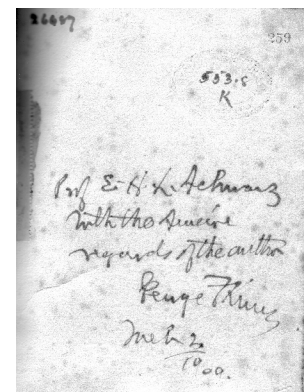 26617
259
553.8
K
Prof E. H. L. Schwarz
with the sincere
regards of the author
George F Kunz